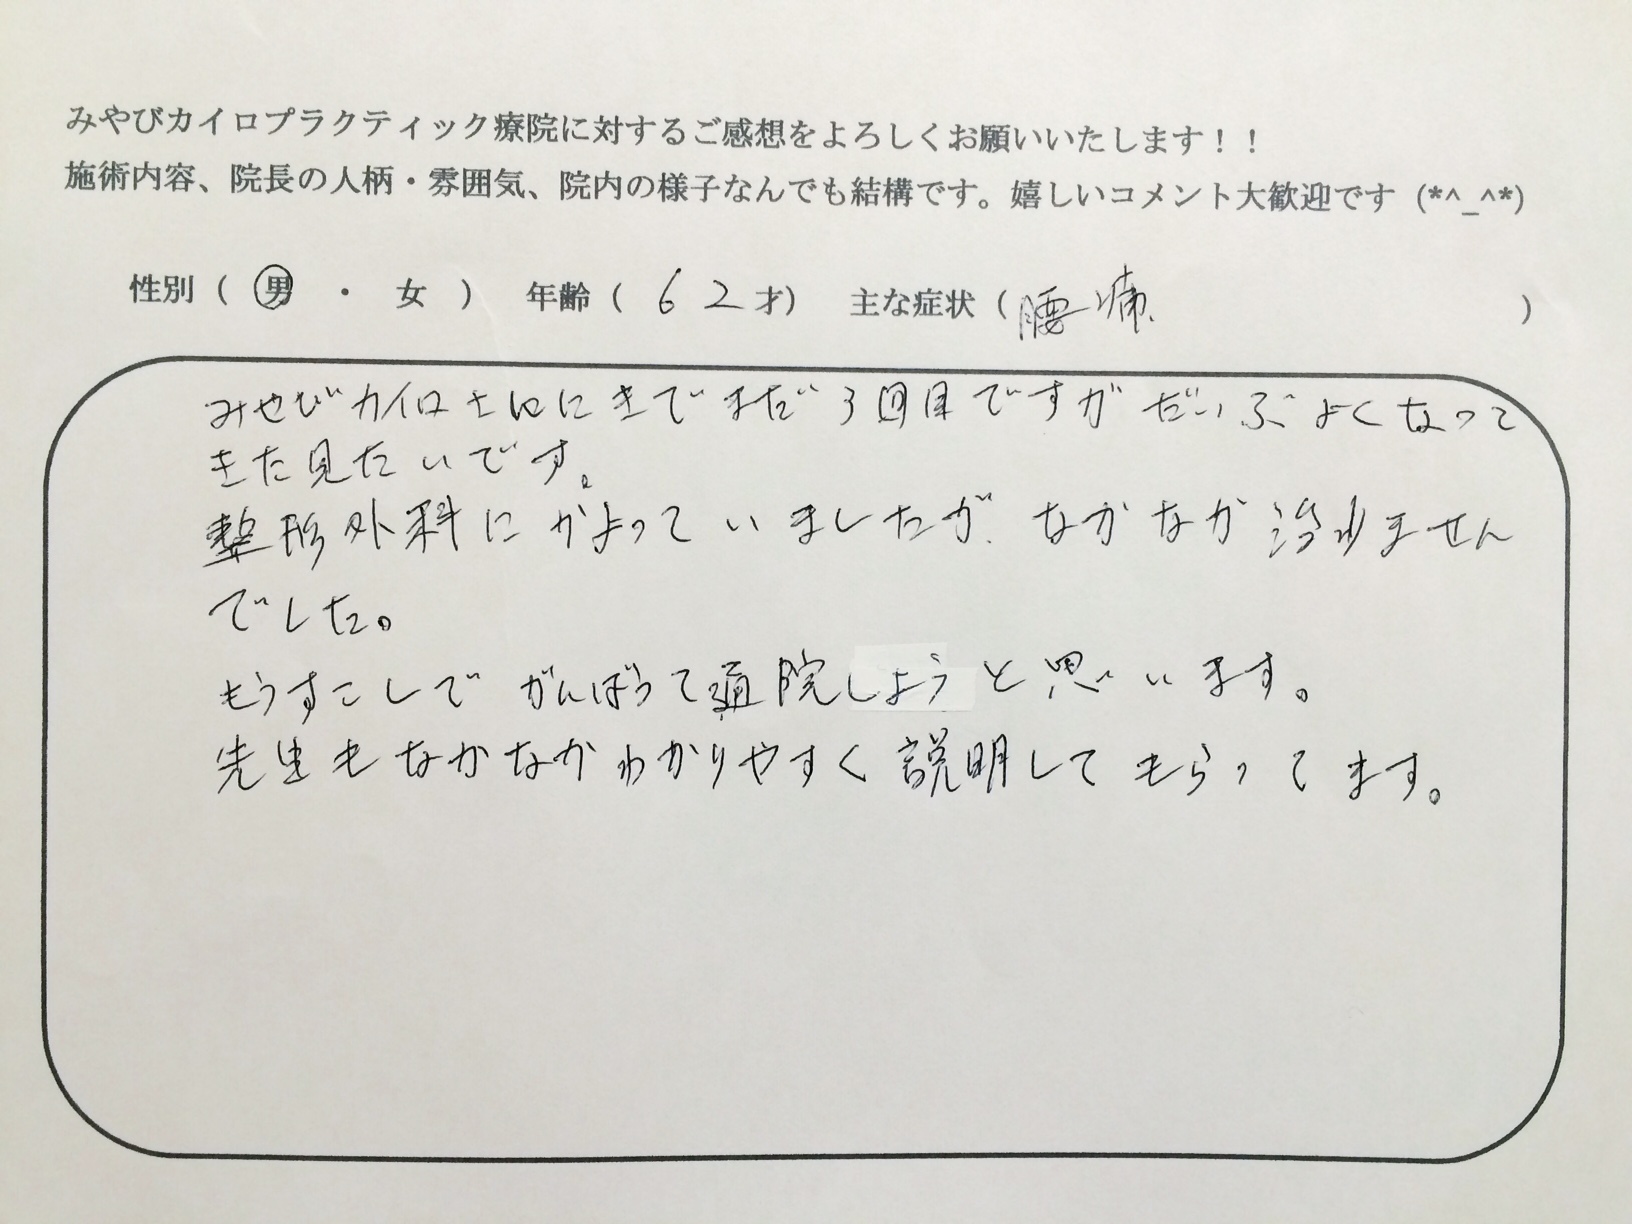 みやびカイロプラクティック療院に対するご感想をよろしくお願いいたします！！
施術内容、院長の人柄・雰囲気、院内の様子なんでも結構です。嬉しいコメント大歓迎です (*^_^*)
性別（ 男 ・ 女 ） 年齢（ 62才） 主な症状（腰痛 ）
みやびカイロ にきてまだ3回目ですがだいぶよくなって
きた見たいです。
整形外科にかよっていましたが、なかなか治りません
でした。
もうすこしでがんばって通院しようと思います。
先生もなかなかわかりやすく説明してもらってます。